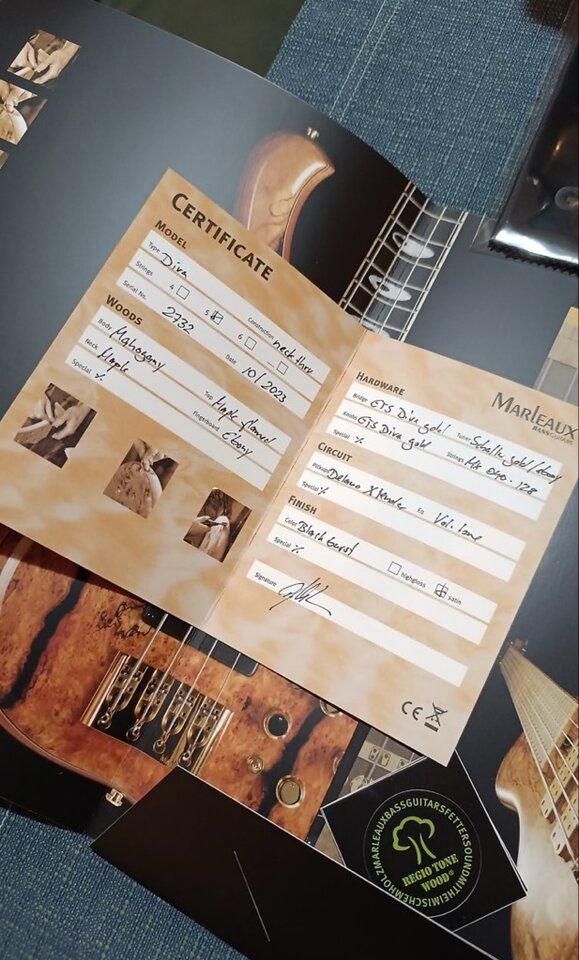 CERTIFICATE
MODEL
Type Diva
Strings 4 5 6
Construction neck thru
Serial No. 2732
Date 10/2023
WOODS
Body Mahogany
Top Maple flamed
Neck Maple
Fingerboard Ebony
Special %
MARLEAUX
BASSGUITARS
HARDWARE
Bridge ETS Diva gold
Tuner Schaller gold/Ebony
Knobs ETS Diva gold
Strings MM 040-128
Special %
CIRCUIT
Pickup Delano Xtender
EQ Vol. tone
Special %
FINISH
Color Blackburst
highgloss satin
Special %
Signature
CE
MARLEAUXBASSGUITARSFETTERSOUNDMITHEIMISCHEMHOLZ
REGIO TONE
WOOD®